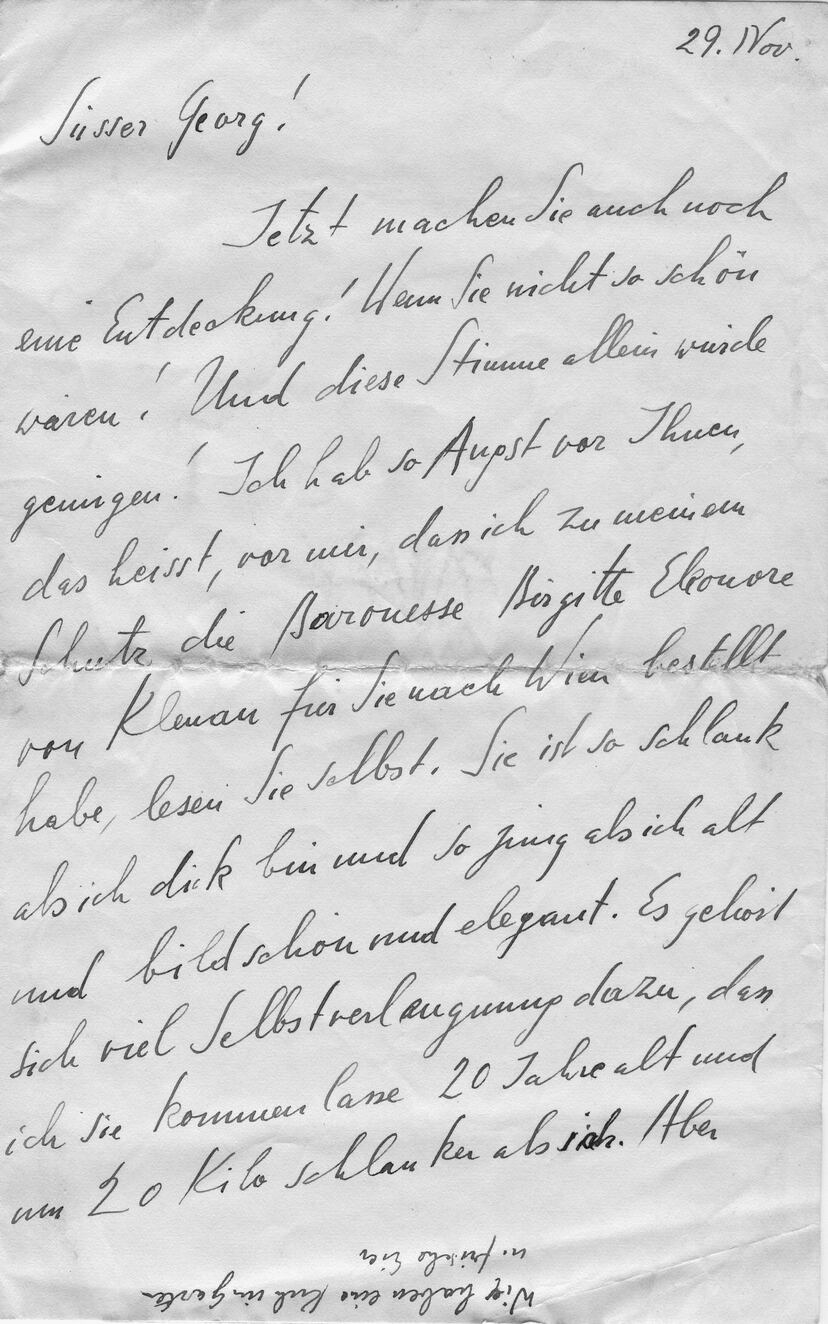 29. Nov.
Süsser Georg!
Jetzt machen Sie auch noch
eine Entdeckung! Wenn Sie nicht so schön
wären! Und diese Stimme allein würde
genügen! Ich hab so Angst vor Ihnen,
das heisst, vor mir, dass ich zu meinem
Schutz die Baronesse Birgitte Eleonore
von Klenau für Sie nach Wien bestellt
habe, lesen Sie selbst. Sie ist so schlank
als ich dick bin und so jung als ich alt
und bildschön und elegant. Es gehört
sich viel Selbstverläugnung dazu, dass
ich sie kommen lasse 20 Jahre alt und
um 20 Kilo schlanker als ich. Aber
Wir haben eine Kuh im Garten
u. frische Eier